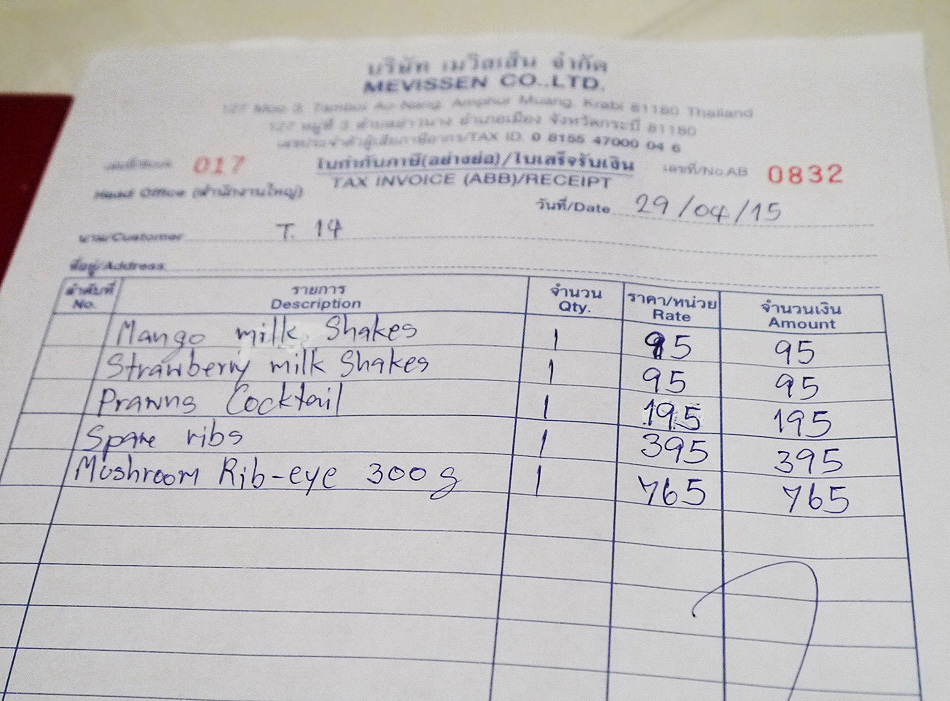 บริษัท เมวิสเส็น จำกัด
MEVISSEN CO.,LTD.
127 Moo 3, Tambol Ao-Nang, Amphur Muang, Krabi 81180 Thailand
127 หมู่ที่ 3 ตำบลอ่าวนาง อำเภอเมือง จังหวัดกระบี่ 81180
เลขประจำตัวผู้เสียภาษีอากร/TAX ID. 0 8155 47000 04 6
017 ใบกำกับภาษี(อย่างย่อ)/ใบเสร็จรับเงิน เลขที่/No.AB 0832
Head Office (สำนักงานใหญ่) TAX INVOICE (ABB)/RECEIPT
วันที่/Date 29/04/15
นาม/Customer T. 14
ที่อยู่/Address
ลำดับที่ รายการ จำนวน ราคา/หน่วย จำนวนเงิน
No. Description Qty. Rate Amount
Mango milk Shakes 1 95 95
Strawberry milk Shakes 1 95 95
Prawns Cocktail 1 195 195
Spare ribs 1 395 395
Mushroom Rib-eye 300 g 1 765 765